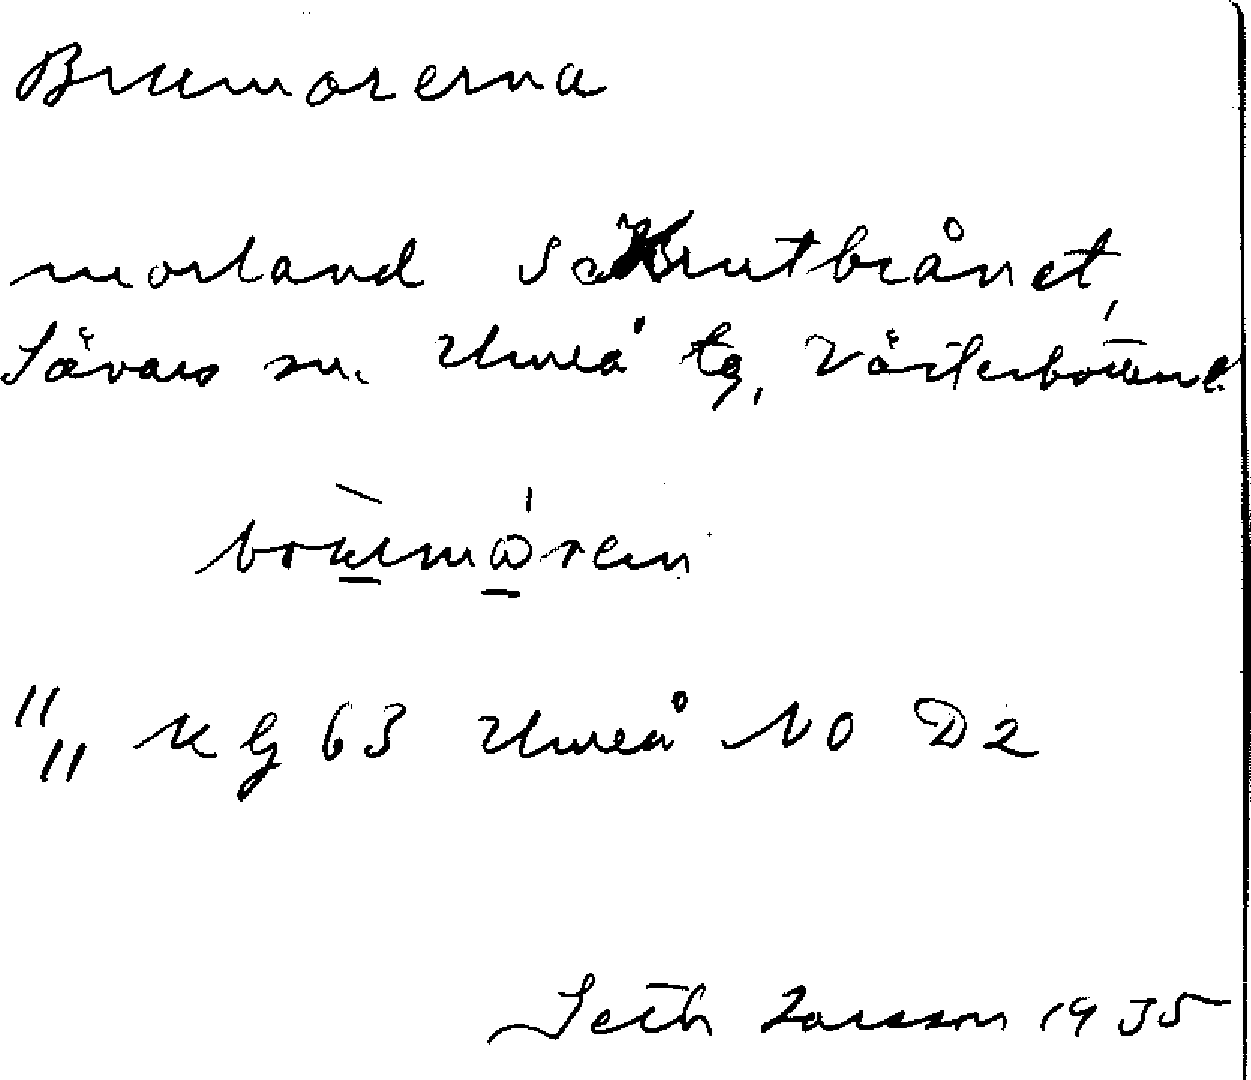 Brumorerna
morland so Krutbrånet,
Sävars sn. Umeå tg, Västerbottens l.
" KG 63 Umeå NO D2
Seth Larsson 1935